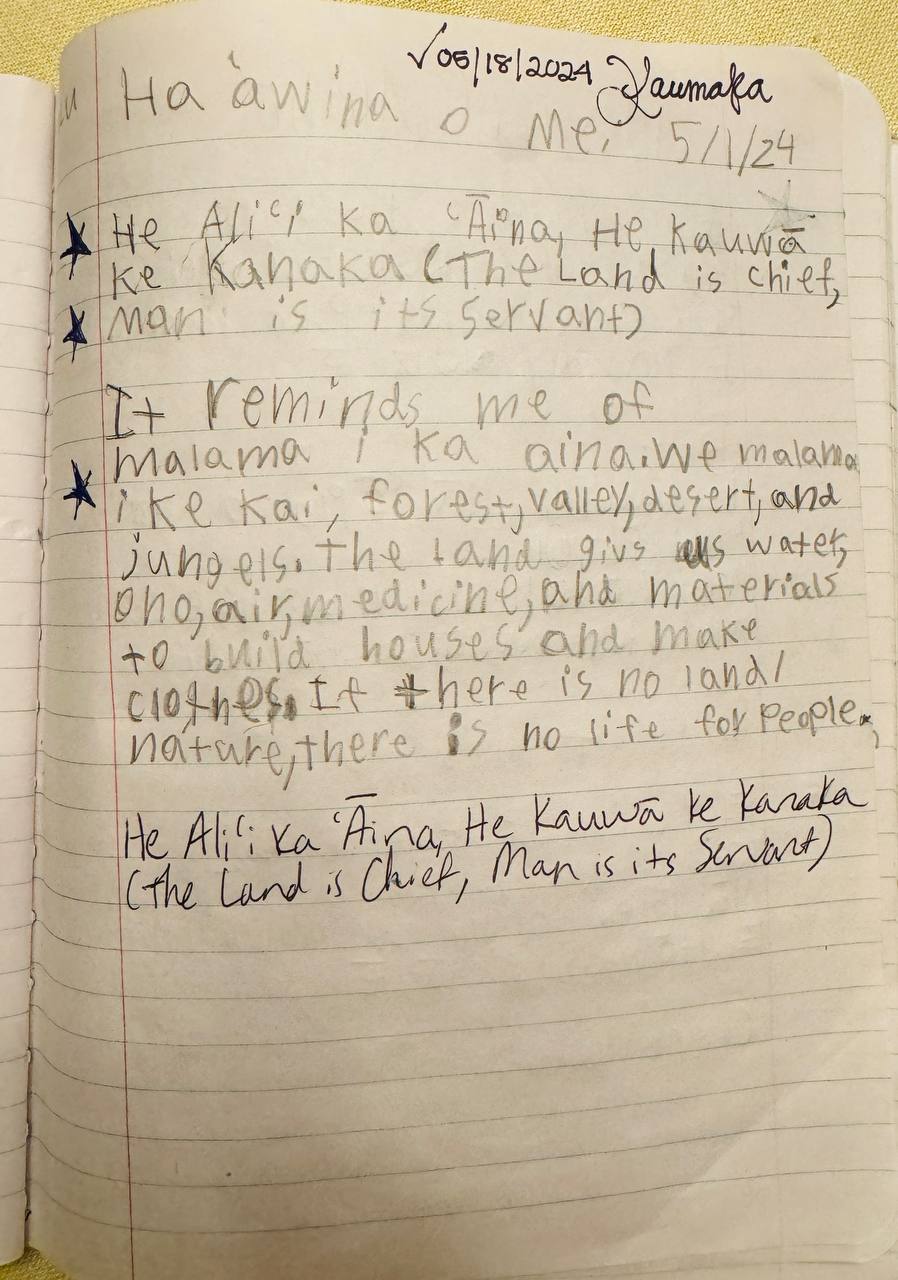 ✓05/18/2024 Kaumaka
Ha'awina o Me. 5/1/24
He Ali‘i ka ‘Āina, He Kauwā
ke Kanaka (The Land is chief,
man is its servant)
It reminds me of
malama i ka aina. We malama
i ke kai, forest, valley, desert, and
jungels. The land givs us water,
ono, air, medicine, and materials
to build houses and make
clothes. If there is no land/
nature, there is no life for people.
He Ali‘i ka ‘Āina, He Kauwā ke Kanaka
(The Land is Chief, Man is its Servant)